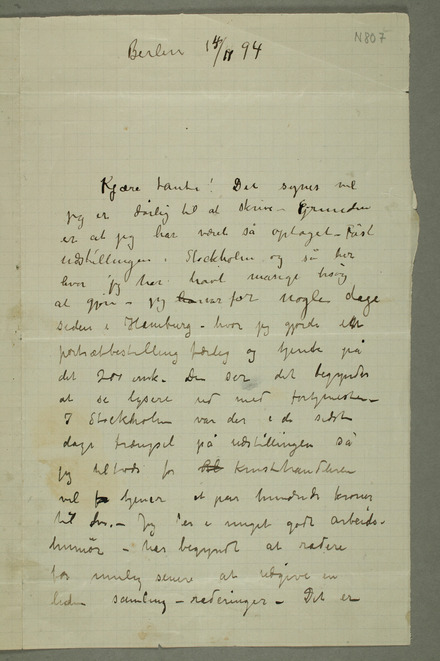 N.807
Berlin 14/11 94
Kjære tante! Det synes vel
jeg er dårlig til at skrive – Grunden
er at jeg har været så optaget – først
udstillingen i Stockholm og så her
hvor jeg har havt mange besøg
at gjøre – jeg var for nogle dage
siden i Hamburg – hvor jeg gjorde en
portrætbestilling færdig og tjente på
det 200 mk. Du ser det begynder
at se lysere ud med fortjenesten –
I Stockholm var der i de sidste
dage trængsel på udstillingen så
jeg tiltrods for kunsthandleren
vel tjener et par hundrede kroner
til der. – Jeg er i meget godt arbeids-
humør – har begyndt at radere
for mulig senere at udgive en
liden samling – raderinger – Det er